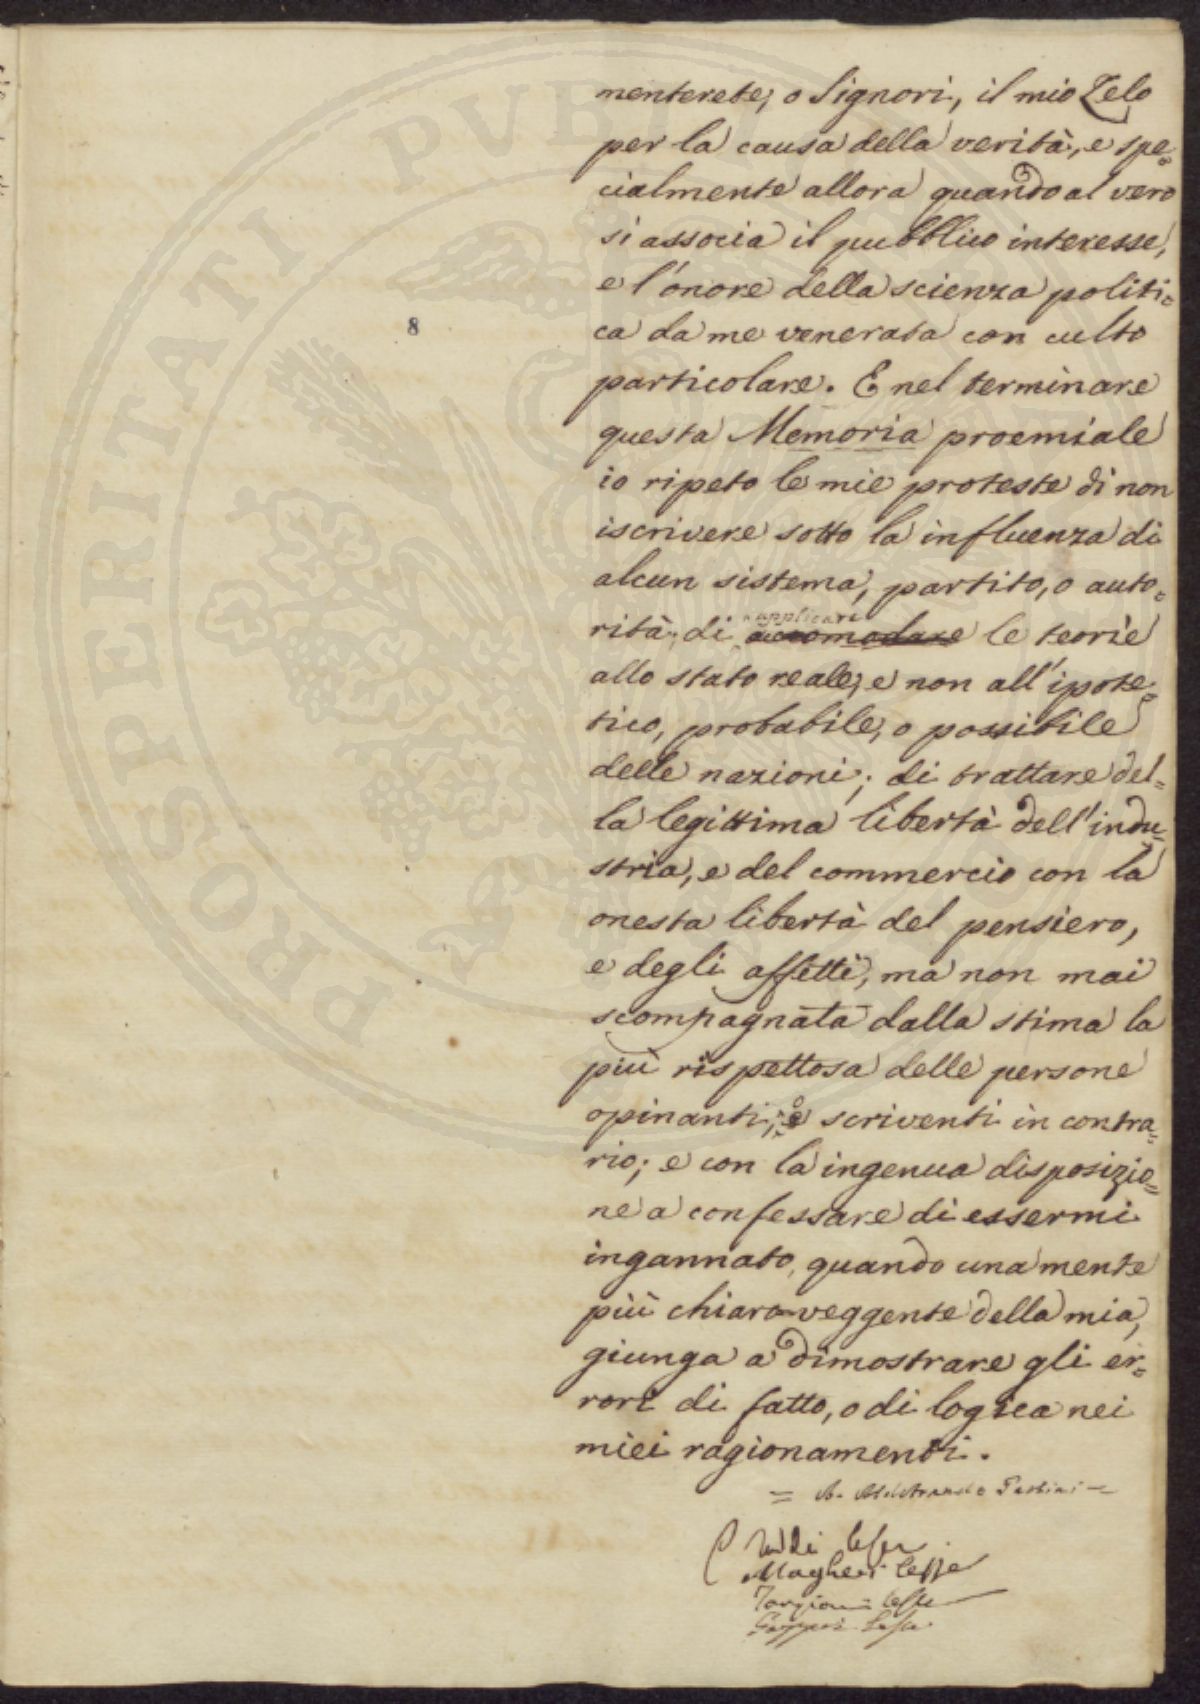 menterete, o Signori, il mio Zelo
per la causa della verità, e spe=
cialmente allora quando al vero
si associa il pubblico interesse,
e l'onore della scienza politi=
ca da me venerata con culto
8
particolare. E nel terminare
questa Memoria proemiale
io ripeto le mie proteste di non
iscrivere sotto la influenza di
alcun sistema, partito, o auto=
applicare
rità; di accomodare le teorie
allo stato reale, e non all'ipote=
tico, probabile, o possibile
delle nazioni; di trattare del=
la legittima libertà dell'indu=
stria, e del commercio con la
onesta libertà del pensiero,
e degli affetti, ma non mai
scompagnata dalla stima la
più rispettosa delle persone
opinanti, o scriventi in contra=
rio; e con la ingenua disposizio=
ne a confessare di essermi
ingannato, quando una mente
più chiaroveggente della mia,
giunga a dimostrare gli er=
rori di fatto, o di logica nei
miei ragionamenti.
= A. Aldobrando Paolini =
Magheri lesse
Targioni lesse
PROSPERITATI PUBL